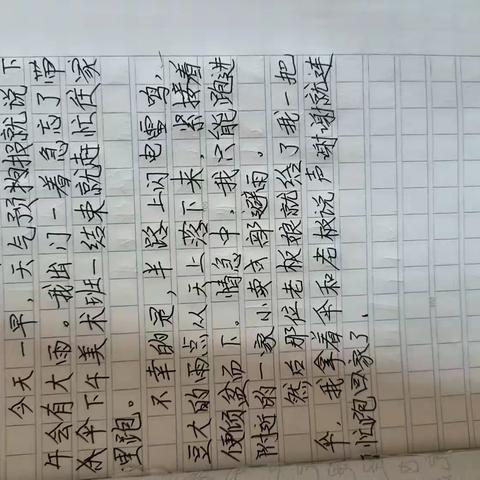 今天一早，天气预报就说下
午会有大雨。我出门一着急忘了带
伞下午美术班一结束就赶忙往家
里跑。
不幸的是，半路上闪电雷鸣，
豆大的雨点从天上落下来，紧接着
便倾盆而下。情急中，我只能跑进
附近的一家小卖部避雨。
然后那位老板娘就给了我一把
伞，我拿着伞和老板说声谢谢就连
忙跑回家了。